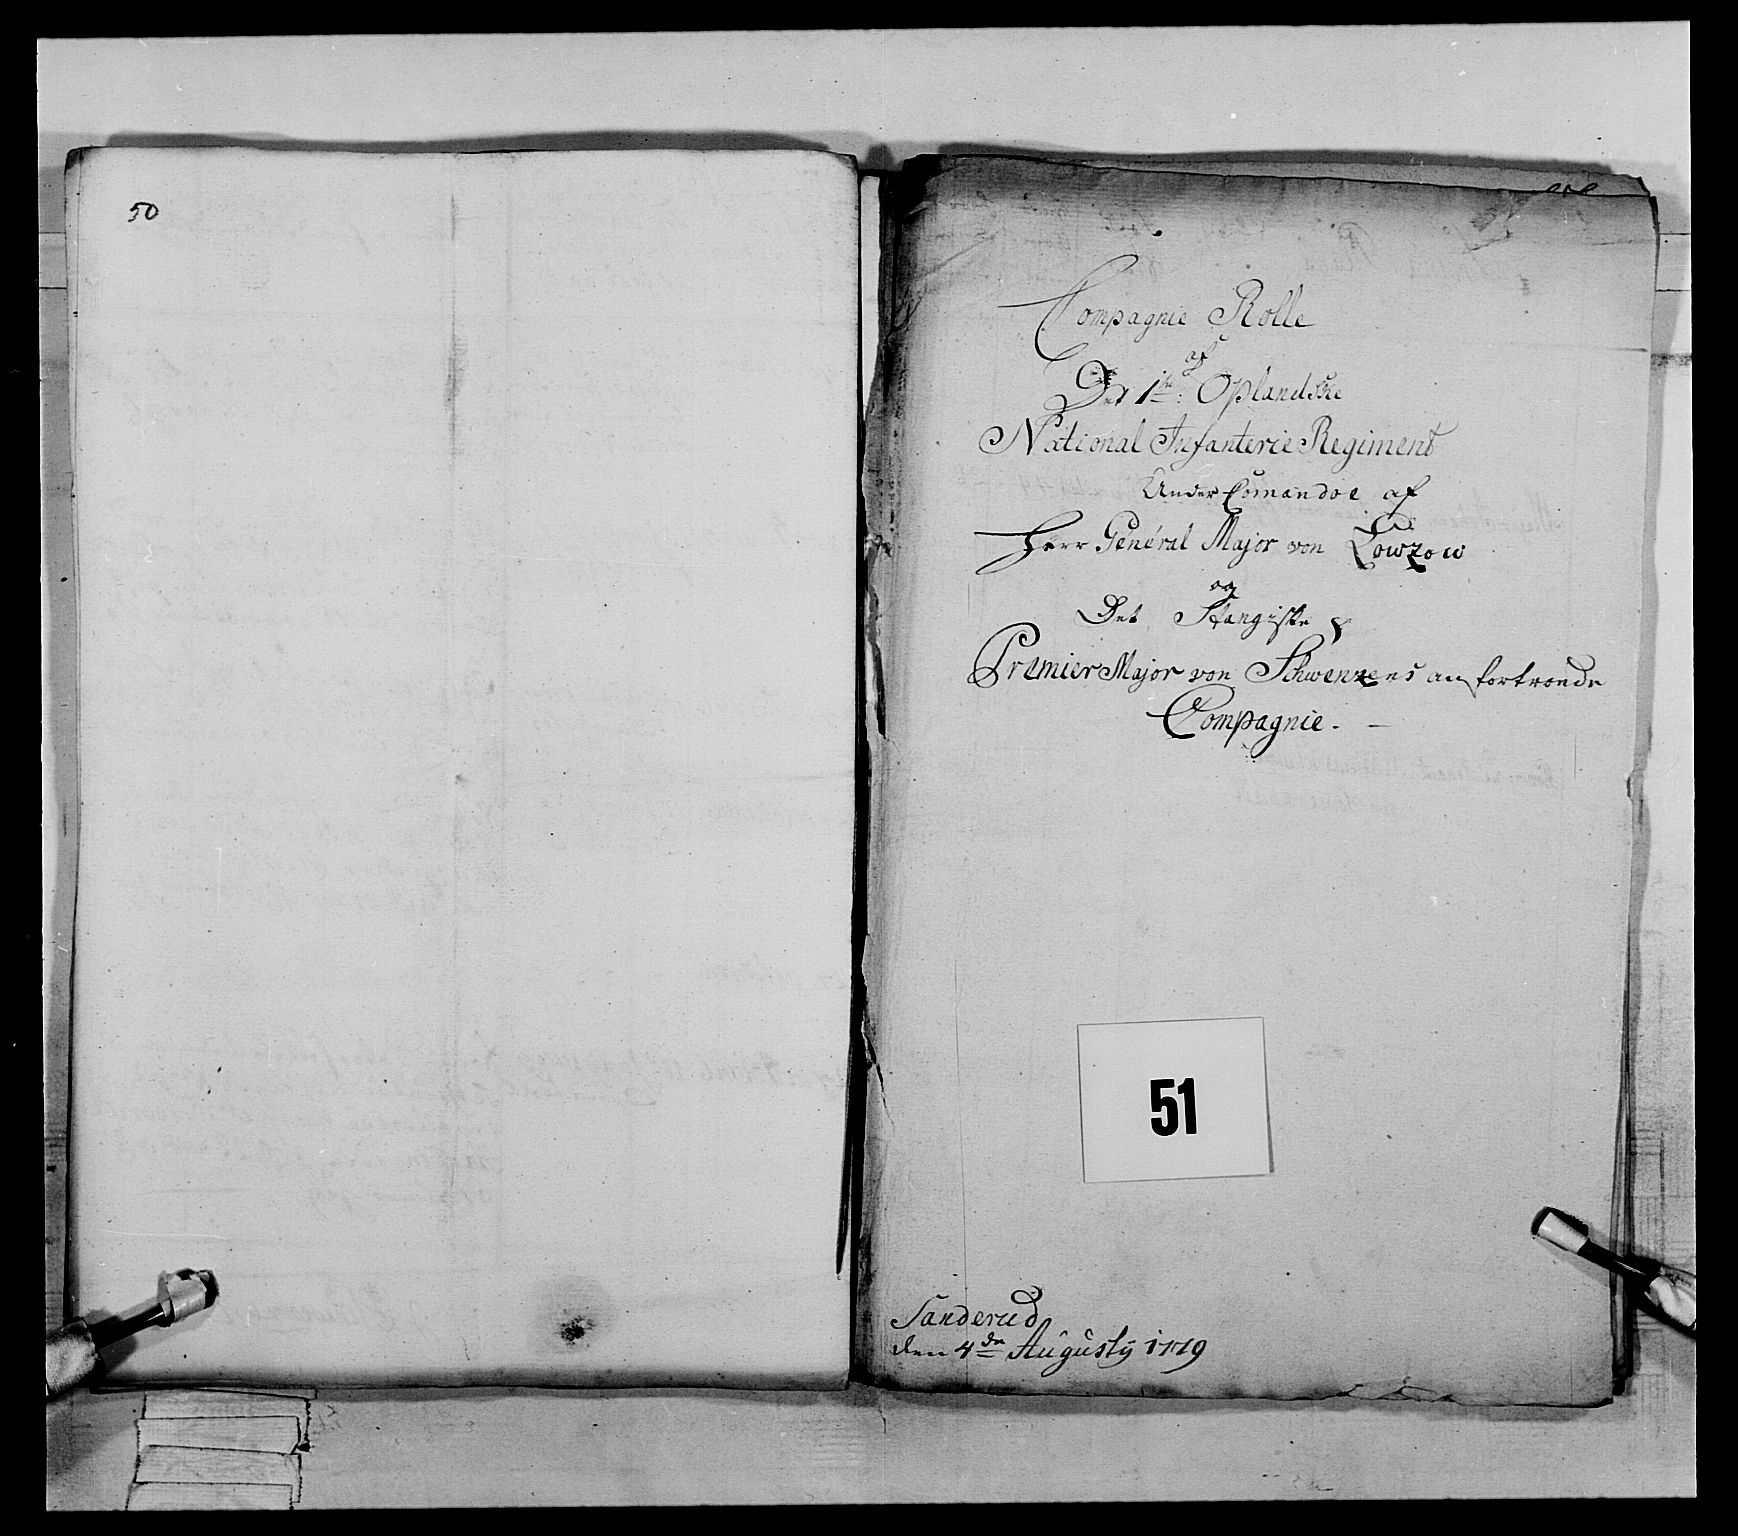 50
Compagnie Rolle
af
Det 1te: Oplandske
National Infanterie Regiment
Under Comandoe af
Herr General Major von Lowzow
og
Det Stangiske
Premier Major von Schwenzens anfortroede
Compagnie. -
51
Sanderud
den 4de Augusty 1779